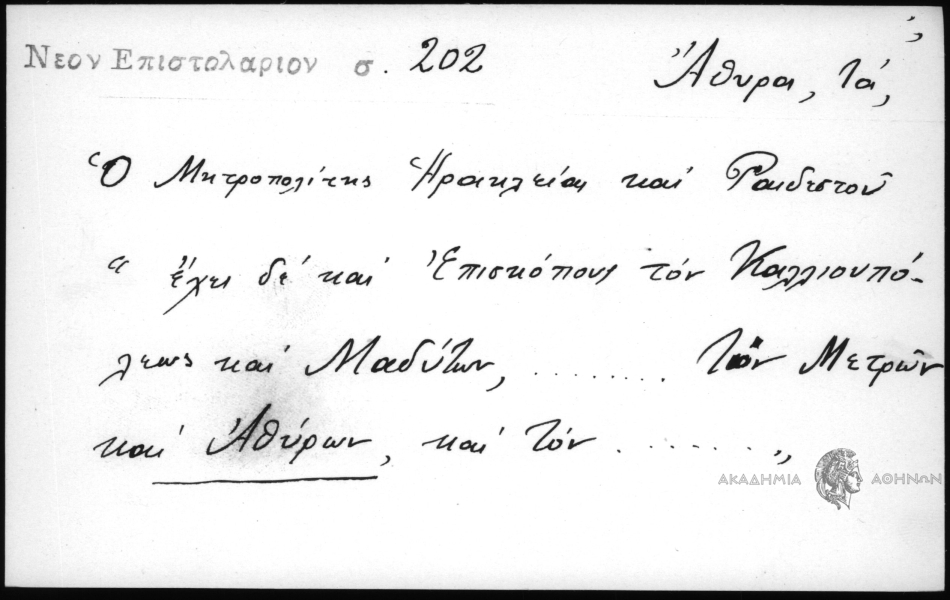 Νεον Επιστολαριον σ. 202
Ἄθυρα, τά,
Ὁ Μητροπολίτης Ἡρακλείας καί Ραιδεστοῦ
“ ἔχει δέ καί Ἐπισκόπους τόν Καλλιουπό-
λεως καί Μαδύτων, ........ τόν Μετρῶν
καί Ἀθύρων, καί τόν ....... „
ΑΚΑΔΗΜΙΑ ΑΘΗΝΩΝ